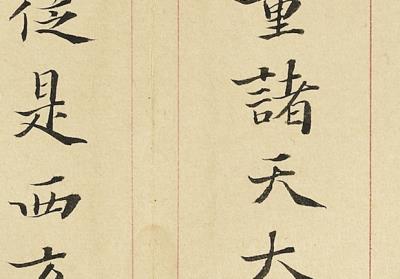 量諸天大
從是西方